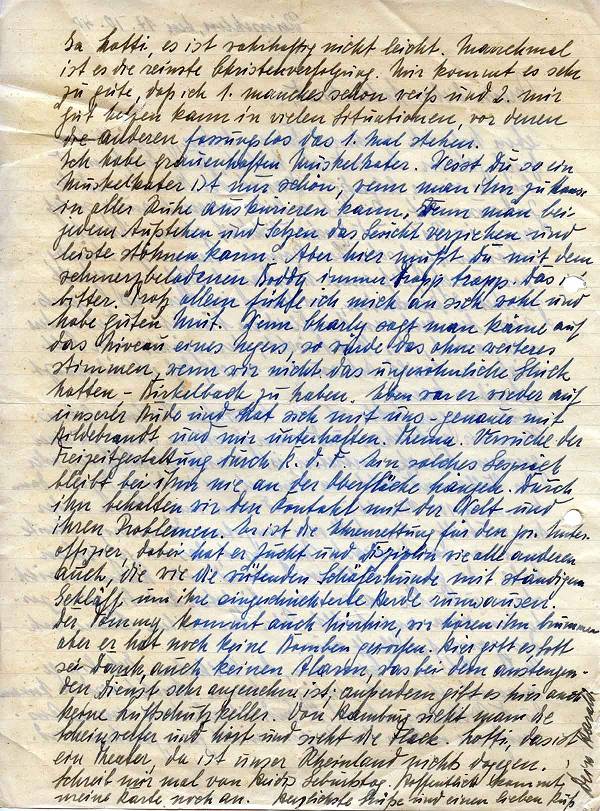 Ja Lotti, es ist wahrhaftig nicht leicht. Manchmal
ist es die reinste Christenverfolgung. Mir kommt es sehr
zu gute, daß ich 1. manches schon weiß und 2. mir
gut helfen kann in vielen Situationen, vor denen
die anderen fassungslos das 1. Mal stehen.
Ich habe grauenhaften Muskelkater. Weisst Du so ein
Muskelkater ist nur schön, wenn man ihn zu Hause
in aller Ruhe auskurieren kann, wenn man bei
jedem Aufstehen und Setzen das Gesicht verziehen und
leise stöhnen kann. Aber hier mußt Du mit dem
schmerzbeladenen Body immer trapp trapp. Das i
bitter. Trotz allem fühle ich mich an sich wohl und
habe guten Mut. Wenn Charly sagt man käme auf
das Niveau eines Negers, so würde das ohne weiteres
stimmen, wenn wir nicht das ungewöhnliche Glück
hätten - Birkelbach zu haben. Eben war er wieder auf
unserer Bude und hat sich mit uns - genauer mit
Hildebrandt und mir unterhalten. Thema: Versuche der
Freizeitgestaltung durch K. d. F. Ein solches Gespräch
bleibt bei ihm nie an der Oberfläche hängen. Durch
ihn behalten wir den Kontakt mit der Welt und
ihren Problemen. Er ist die Ehrenrettung für den pr. Unter-
offizier, dabei hat er Zucht und Disziplin wie alle anderen
auch, die wie die wütenden Schäferhunde mit ständigem
Gekläff um ihre eingeschüchterte Herde rumsausen.
Der Tommy kommt auch hierhin, wir hören ihn brummen
aber er hat noch keine Bomben geworfen. Hier gibt es Gott
sei Dank auch keinen Alarm, was bei dem anstrengen-
den Dienst sehr angenehm ist; außerdem gibt es hier auch
keine Luftschutzkeller. Von Hamburg sieht man die
Scheinwerfer und hört und sieht die Flack. Lotti, das ist
ein Theater, da ist unser Rheinland nichts dagegen.
Schreib mir mal von Geburtstag. Hoffentlich kommt
meine Karte noch an. Herzlichste Grüße und einen lieben Kuß